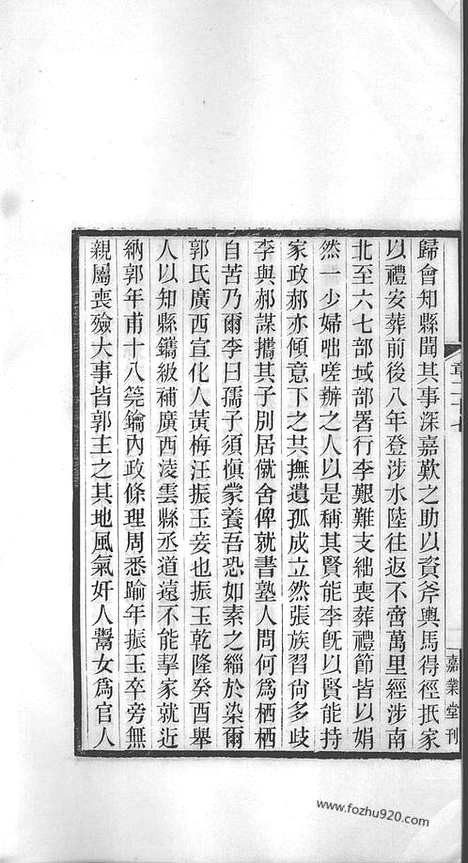 歸會知縣聞其事深嘉歎之助以資斧輿馬得徑抵家
以禮安葬前後八年登涉水陸往返不啻萬里經涉南
北至六七部域部署行李艱難支絀喪葬禮節皆以娟
然一少婦咄嗟辦之人以是稱其賢能李旣以賢能持
家政郝亦傾意下之共撫遺孤成立然張族習尙多歧
李與郝謀攜其子別居僦舍俾就書塾人問何爲栖栖
自苦乃爾李曰孺子須愼蒙養吾恐如素之緇於染爾
郭氏廣西宣化人黃梅汪振玉妾也振玉乾隆癸酉舉
人以知縣鐫級補廣西淩雲縣丞道遠不能挈家就近
納郭年甫十八筦鑰內政條理周悉踰年振玉卒旁無
親屬喪殮大事皆郭主之其地風氣奸人鬻女爲官人
嘉業堂刊
www.fozhu920.com